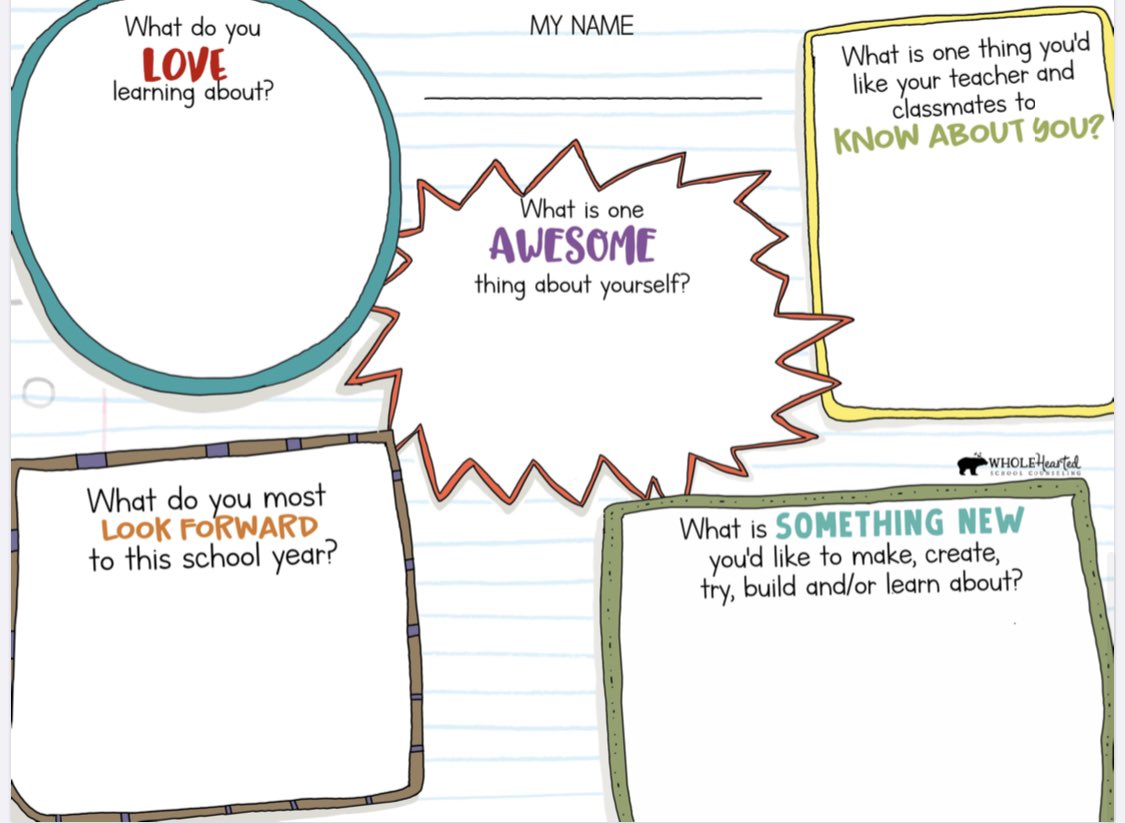 What do you
LOVE
learning about?
MY NAME
What is one thing you'd
like your teacher and
classmates to
KNOW ABOUT YOU?
What is one
AWESOME
thing about yourself?
WHOLEHearted
SCHOOL COUNSELING
What do you most
LOOK FORWARD
to this school year?
What is SOMETHING NEW
you'd like to make, create,
try, build and/or learn about?